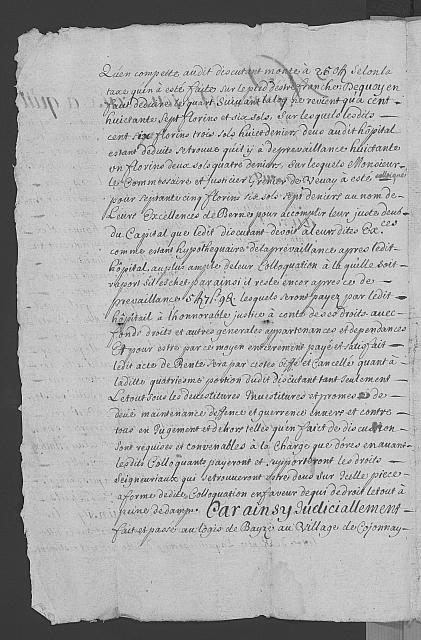 Quien compette audit discutant monte à 250 ff selon la
taxe quien à esté faitte sur le pied d'estre franche Dequoy en
fait deduire le quart suivant la loy ne revient qu'a cent
huictante sept florins et six sols, sur lesquels lesdits
cent six florins trois sols huict deniers deus audit hôpital
estant deduits se trouve qu'il y à deprevaillance huictante
un florins deux sols quatre deniers, sur lesquels Monsieur
le Commissaire et Justicier Grenier de Vevay à esté colloqué
pour septante cinq florins six sols sept deniers au nom de
Leurs Excellences de Berne pour accomplir leur juste deub
du Capital que ledit discutant devoit à leurs dites Ex.ces
comme estant hypothequaire de la prevaillance apres ledit
hôpital, au plus ample de leur Colloquation à laquelle soit
raport si lesehet par ainsi il reste encor apres ce de
prevaillance lesquels seront payez par ledit
hôpitail à l'honnorable justice à conte de ses droits avec
fonds droits et autres generales appartenances et dependances
Et pour estre par ce moyen entierement payé et satisfait
ledit acte de Rente sera par cestes effé et Cancellé quant à
ladite quatriesme portion dudit discutant tant seulement
Le tout sous les devestitures Investitures et promes de
deüe maintenance deffence et guerrence envers et contre
tous en Jugement et dehors telles qu'en fait de discution
sont requises et convenables à la Charge que d'ores en avant
lesdits Colloquants payeront et supporteront les droits
seigneuriaux qui se trouveront estre deus sur Icelle piece
a forme dedite Colloquation en faveur de qui de droit le tout à
peine de damp. Car ainsy Judiciallement
fait et passé au logis de Bayze au Village de Cojonnay